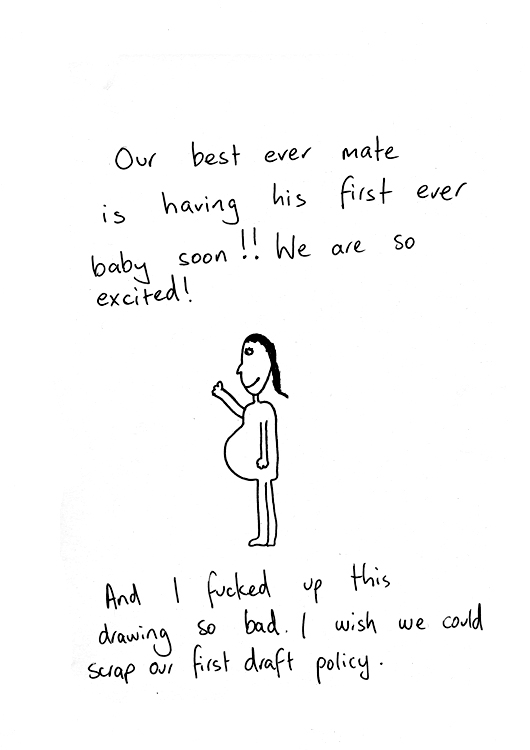 Our best ever mate
is having his first ever
baby soon!! We are so
excited!
And I fucked up this
drawing so bad. I wish we could
scrap our first draft policy.